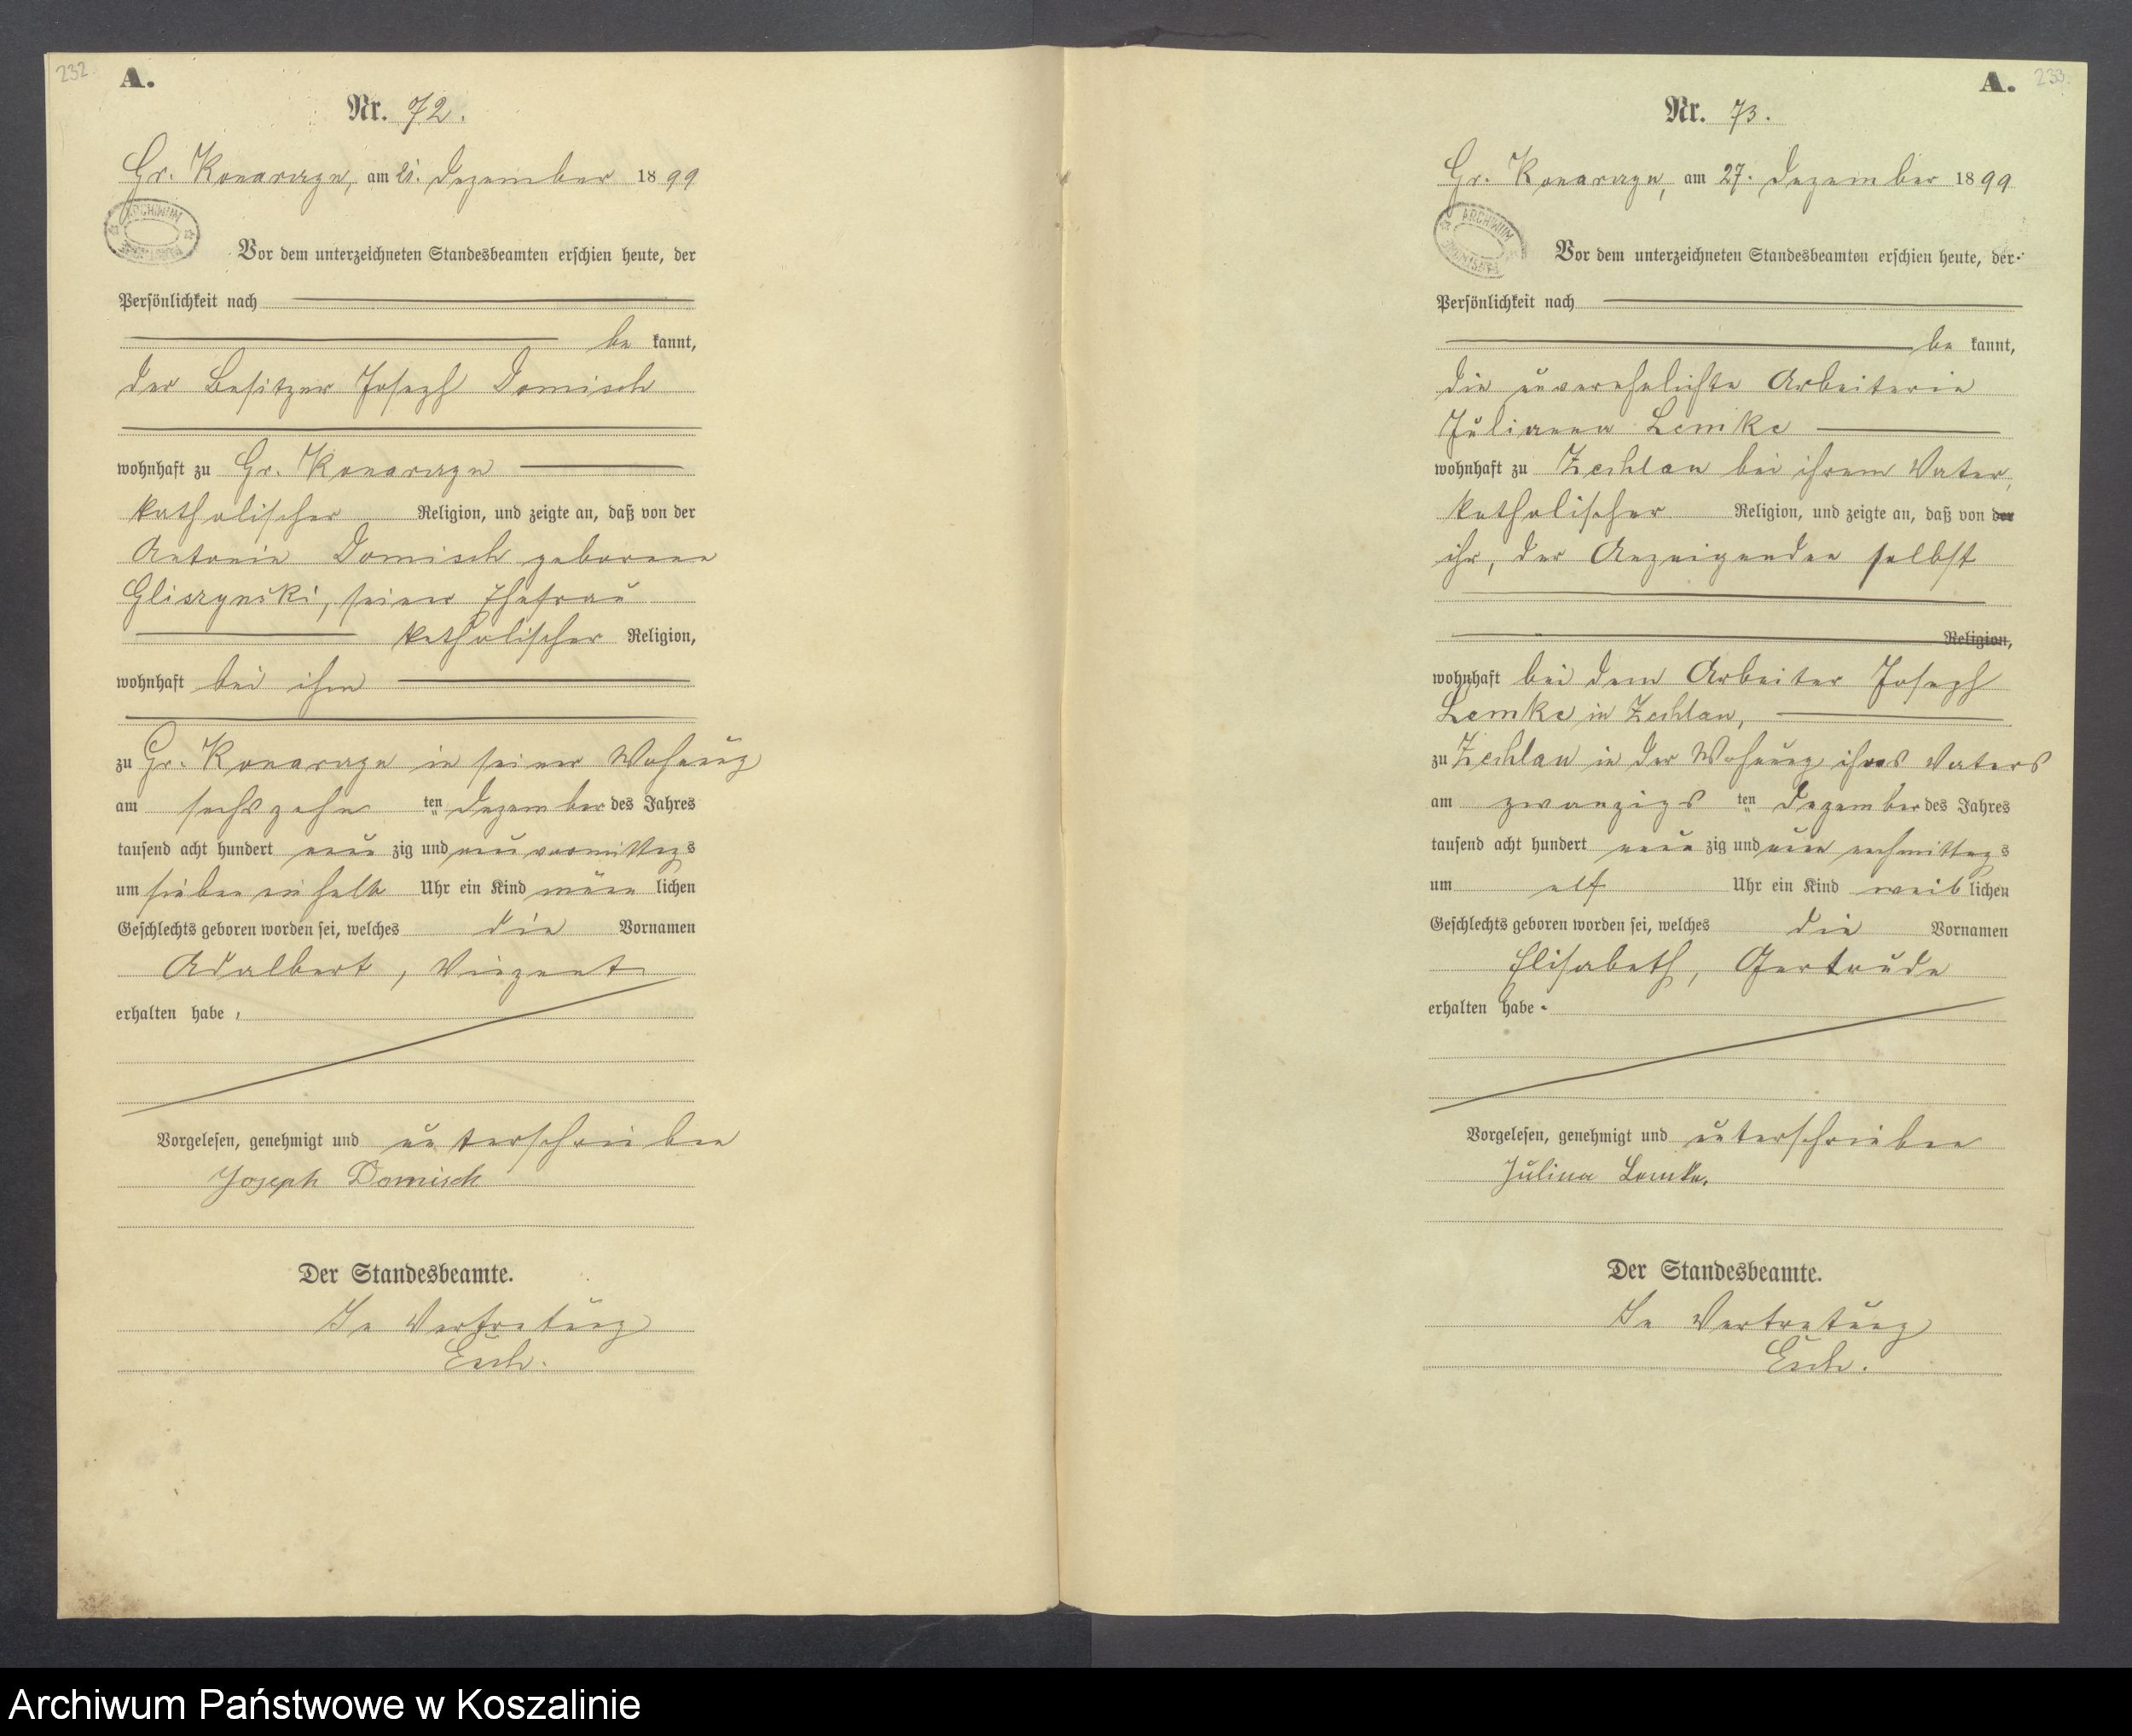 232.
A.
Nr. 72.
Gr. Konarzyn, am 21. Dezember 1899
ARCHIWUM
Vor dem unterzeichneten Standesbeamten erschien heute, der
Persönlichkeit nach
be kannt,
der Besitzer Joseph Domisch
wohnhaft zu Gr. Konarzyn
katholischer Religion, und zeigte an, daß von der
Antonie Domisch geborene
Gliszynski, seiner Ehefrau
katholischer Religion,
wohnhaft bei ihm
zu Gr. Konarzyn in seiner Wohnung
am sechszehn ten Dezember des Jahres
tausend acht hundert neun zig und neun vormittags
um sieben ein halb Uhr ein Kind männ lichen
Geschlechts geboren worden sei, welches die Vornamen
Adalbert, Vinzent
erhalten habe.
Vorgelesen, genehmigt und unterschrieben
Joseph Domisch
Der Standesbeamte.
In Vertretung
Esch.
233.
A.
Nr. 73.
Gr. Konarzyn, am 27. Dezember 1899
ARCHIWUM
Vor dem unterzeichneten Standesbeamten erschien heute, der
Persönlichkeit nach
be kannt,
die unverehelichte Arbeiterin
Julianna Lemke
wohnhaft zu Zechlau bei ihrem Vater,
katholischer Religion, und zeigte an, daß von der
ihr, der Anzeigenden selbst
Religion,
wohnhaft bei dem Arbeiter Joseph
Lemke in Zechlau,
zu Zechlau in der Wohnung ihres Vaters
am zwanzigs ten Dezember des Jahres
tausend acht hundert neun zig und neun nachmittags
um elf Uhr ein Kind weib lichen
Geschlechts geboren worden sei, welches die Vornamen
Elisabeth, Gertrude
erhalten habe.
Vorgelesen, genehmigt und unterschrieben
Julina Lemke.
Der Standesbeamte.
In Vertretung
Esch.
Archiwum Państwowe w Koszalinie